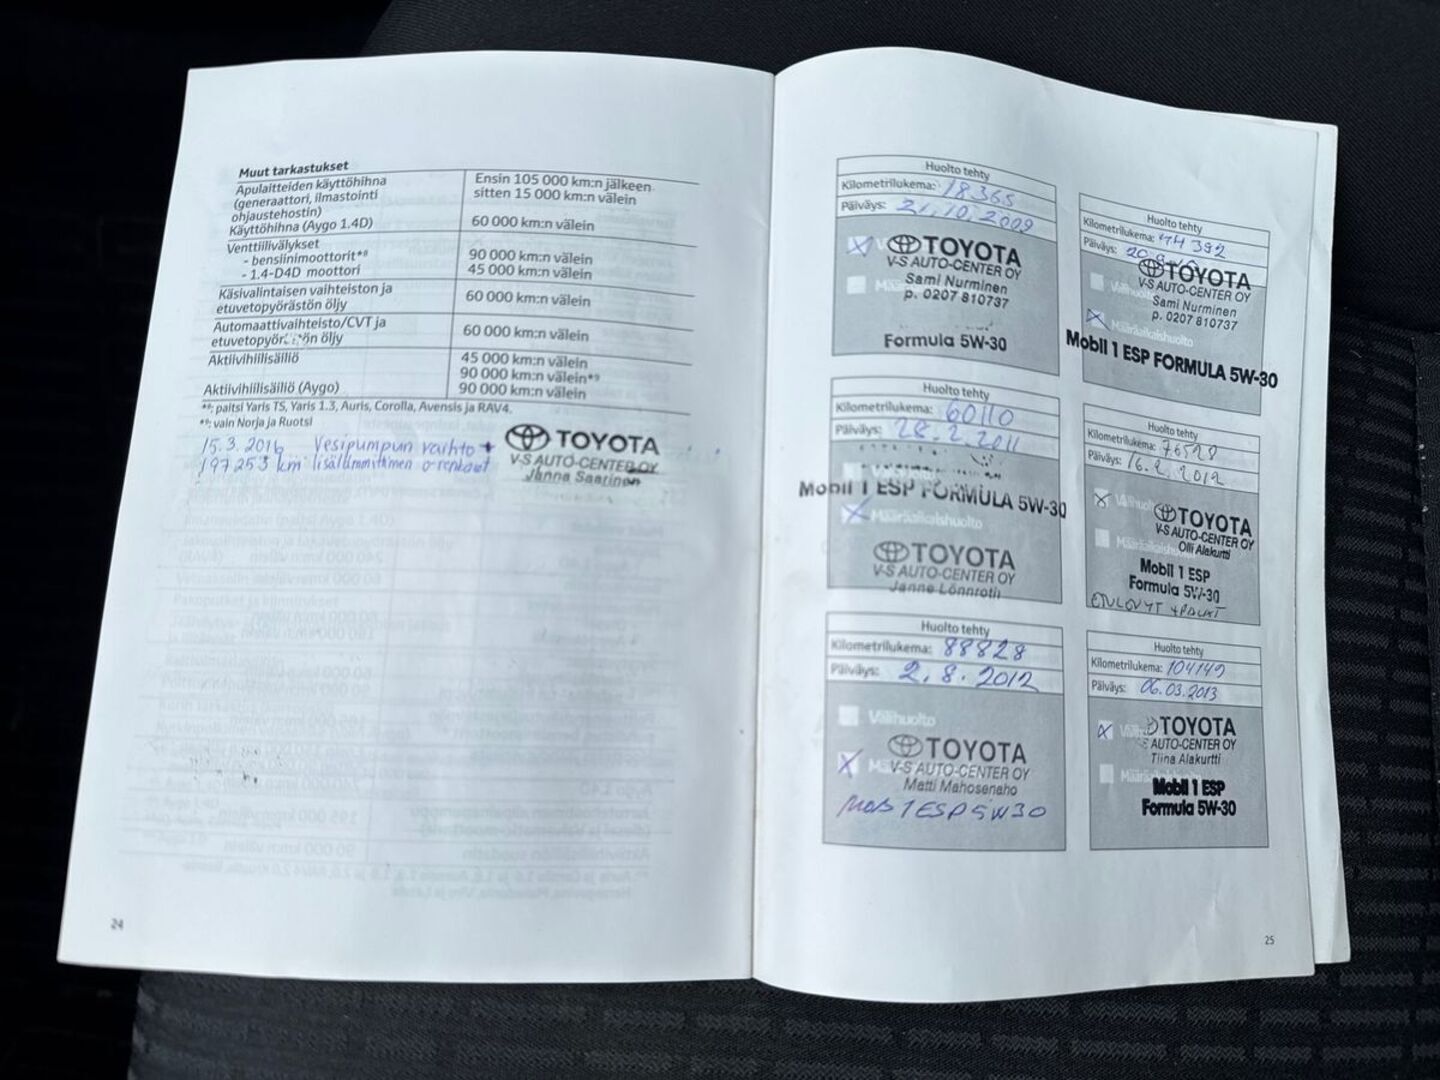 Muut tarkastukset
Apulaitteiden käyttöhihna
(generaattori, ilmastointi
ohjaustehostin)
Ensin 105 000 km:n jälkeen
sitten 15 000 km:n välein
Käyttöhihna (Aygo 1.4D)
60 000 km:n välein
Venttiilivälykset
- bensiinimoottorit*⁸
90 000 km:n välein
- 1.4-D4D moottori
45 000 km:n välein
Käsivalintaisen vaihteiston ja
etuvetopyörästön öljy
60 000 km:n välein
Automaattivaihteisto/CVT ja
60 000 km:n välein
Aktiivihiilisäiliö
45 000 km:n välein
90 000 km:n välein*⁹
Aktiivihiilisäiliö (Aygo)
90 000 km:n välein
*⁸: paitsi Yaris TS, Yaris 1.3, Auris, Corolla, Avensis ja RAV4.
*⁹: vain Norja ja Ruotsi
15.3.2016 Vesipumpun vaihto +
197253 km lisälämmittimen o-renkaat
TOYOTA
V-S AUTO-CENTER OY
Janne Saarinen
24
Huolto tehty
Kilometrilukema: 18365
Päiväys: 21.10.2009
TOYOTA
V-S AUTO-CENTER OY
Sami Nurminen
p. 0207 810737
Formula 5W-30
Huolto tehty
Kilometrilukema: 44 392
Päiväys:
TOYOTA
V-S AUTO-CENTER OY
Sami Nurminen
p. 0207 810737
Määräaikaishuolto
Mobil 1 ESP FORMULA 5W-30
Huolto tehty
Kilometrilukema: 60110
Päiväys: 28.2.2011
Mobil 1 ESP FORMULA 5W-30
Määräaikaishuolto
TOYOTA
V-S AUTO-CENTER OY
Janne Lönnroth
Huolto tehty
Kilometrilukema: 76528
Päiväys: 16.2.2012
TOYOTA
V-S AUTO-CENTER OY
Olli Alakurtti
Mobil 1 ESP
Formula 5W-30
Huolto tehty
Kilometrilukema: 88828
Päiväys: 2.8.2012
Välihuolto
TOYOTA
V-S AUTO-CENTER OY
Matti Mahosenaho
MOB 1 ESP 5W30
Huolto tehty
Kilometrilukema: 104149
Päiväys: 06.03.2013
TOYOTA
AUTO-CENTER OY
Tiina Alakurtti
Mobil 1 ESP
Formula 5W-30
25